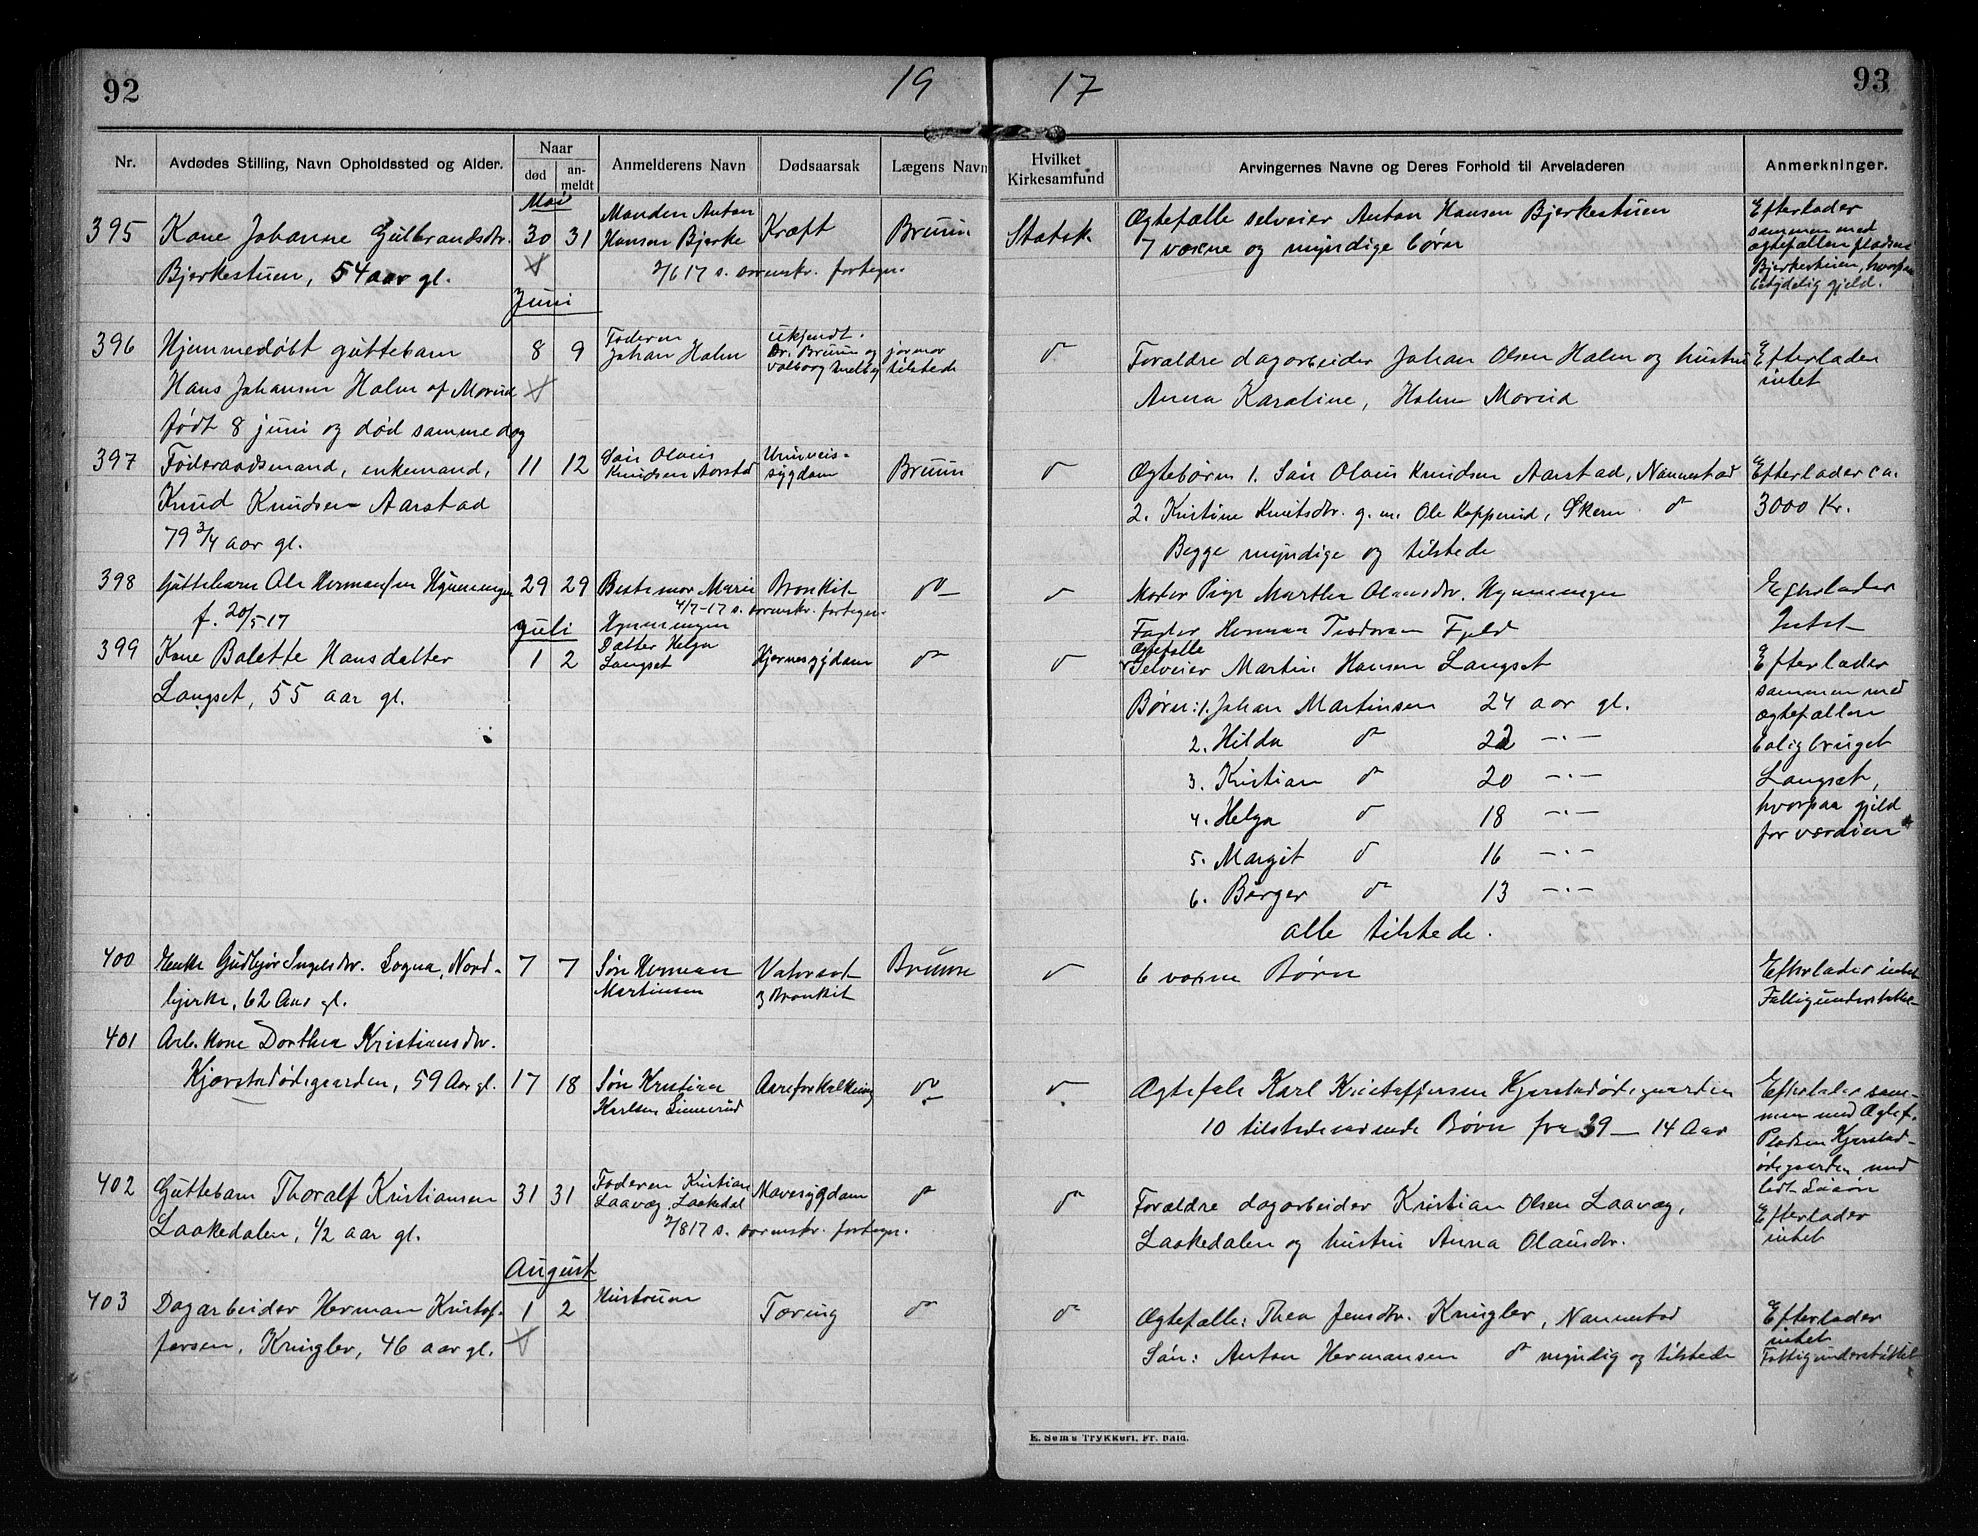 92
19
17
93
Nr.
Avdødes Stilling, Navn Opholdssted og Alder.
Naar
død
an-
meldt
Anmelderens Navn
Dødsaarsak
Lægens Navn
Hvilket
Kirkesamfund
Arvingernes Navne og Deres Forhold til Arveladeren
Anmerkninger.
Mai
395
Kone Johanne Gulbrandsdtr.
Bjerkestuen, 54 aar gl.
30
31
Manden Anton
Hansen Bjerke
Kræft
Bruun
2/6 17 s. fortegn.
Statsk.
Ægtefælle selveier Anton Hansen Bjerkestuen
7 voxne og myndige børn
Efterlader
sammen med
ægtefællen pladsen
Bjerkestuen, hvorpaa
betydelig gjeld.
Juni
396
Hjemmedøbt guttebarn
Hans Johansen Holm af Morud
født 8 juni og død samme dag
8
9
Faderen
Johan Holm
ukjendt.
Dr. Bruun og jormor
Valborg Melby tilstede
Forældre dagarbeider Johan Olsen Holm og hustru
Anna Karoline, Holm Morud
Efterlader
intet
397
Føderaadsmand, enkemand,
Knud Knudsen Aarstad
79 3/4 aar gl.
11
12
Søn Olaus
Knudsen Aarstad
Urinveis-
sygdom
Bruun
Ægtebørn 1. Søn Olaus Knudsen Aarstad, Nannestad
2. Kristine Knutsdtr. g. m. Ole Kopperud, Skern do
Begge myndige og tilstede
Efterlader ca.
3000 Kr.
398
Guttebarn Ole Hermansen
f. 20/5 17
29
29
Bestemor Marie
Bronkit
4/7-17 s. fortegn.
Moder Pige Marthe Olausdtr.
Fader Herman Teodorsen Fjeld
Efterlader
Intet
Juli
399
Kone Balette Hansdatter
Langset, 55 aar gl.
1
2
Datter Helga
Langset
Hjernesygdom
do
do
Ægtefælle
Selveier Martin Hansen Langset
Børn: 1. Johan Martinsen 24 aar gl.
2. Hilda do 22 -"-
3. Kristian do 20 -"-
4. Helga do 18 -"-
5. Margit do 16 -"-
6. Berger do 13 -"-
alle tilstede.
Efterlader
sammen med
ægtefællen
boligbruget
Langset,
hvorpaa gjeld
for værdien
400
Enke Gudbjør Ingelsdtr. Sogna, Nord-
bjerke, 62 Aar gl.
7
7
Søn Herman
Martinsen
Vatersot
og Bronkit
Bruun
do
6 voxne Børn
Efterlader intet
Fattigunderstøttet
401
Arb. Kone Dorthea Kristiansdtr.
Kjærstadødegaarden, 59 Aar gl.
17
18
Søn Kristian
Karlsen
Aareforkalkning
do
do
Ægtefele Karl Kristoffersen Kjerstadødegaarden
10 tilstedeværende Børn fra 39 - 14 Aar
Efterlader sam-
men med Ægtef.
Pladsen Kjerstad-
ødegaarden med
lidt
402
Guttebarn Thoralf Kristiansen
Laakedalen, 1/2 aar gl.
31
31
Faderen Kristian
Laavæg, Laakedal
Mavesygdom
do
2/8 17 s. fortegn.
do
Forældre dagarbeider Kristian Olsen Laavæg,
Laakedalen og hustru Anna Olausdtr.
Efterlader
intet
August
403
Dagarbeider Herman Kristof-
fersen, Kringler, 46 aar gl.
1
2
Hustruen
Tæring
do
do
Ægtefælle: Thea Jensdtr. Kringler, Nannestad
Søn: Anton Hermansen do myndig og tilstede
Efterlader
intet
Fattigunderstøttet
E. Sem's Trykkeri, Fr.hald.